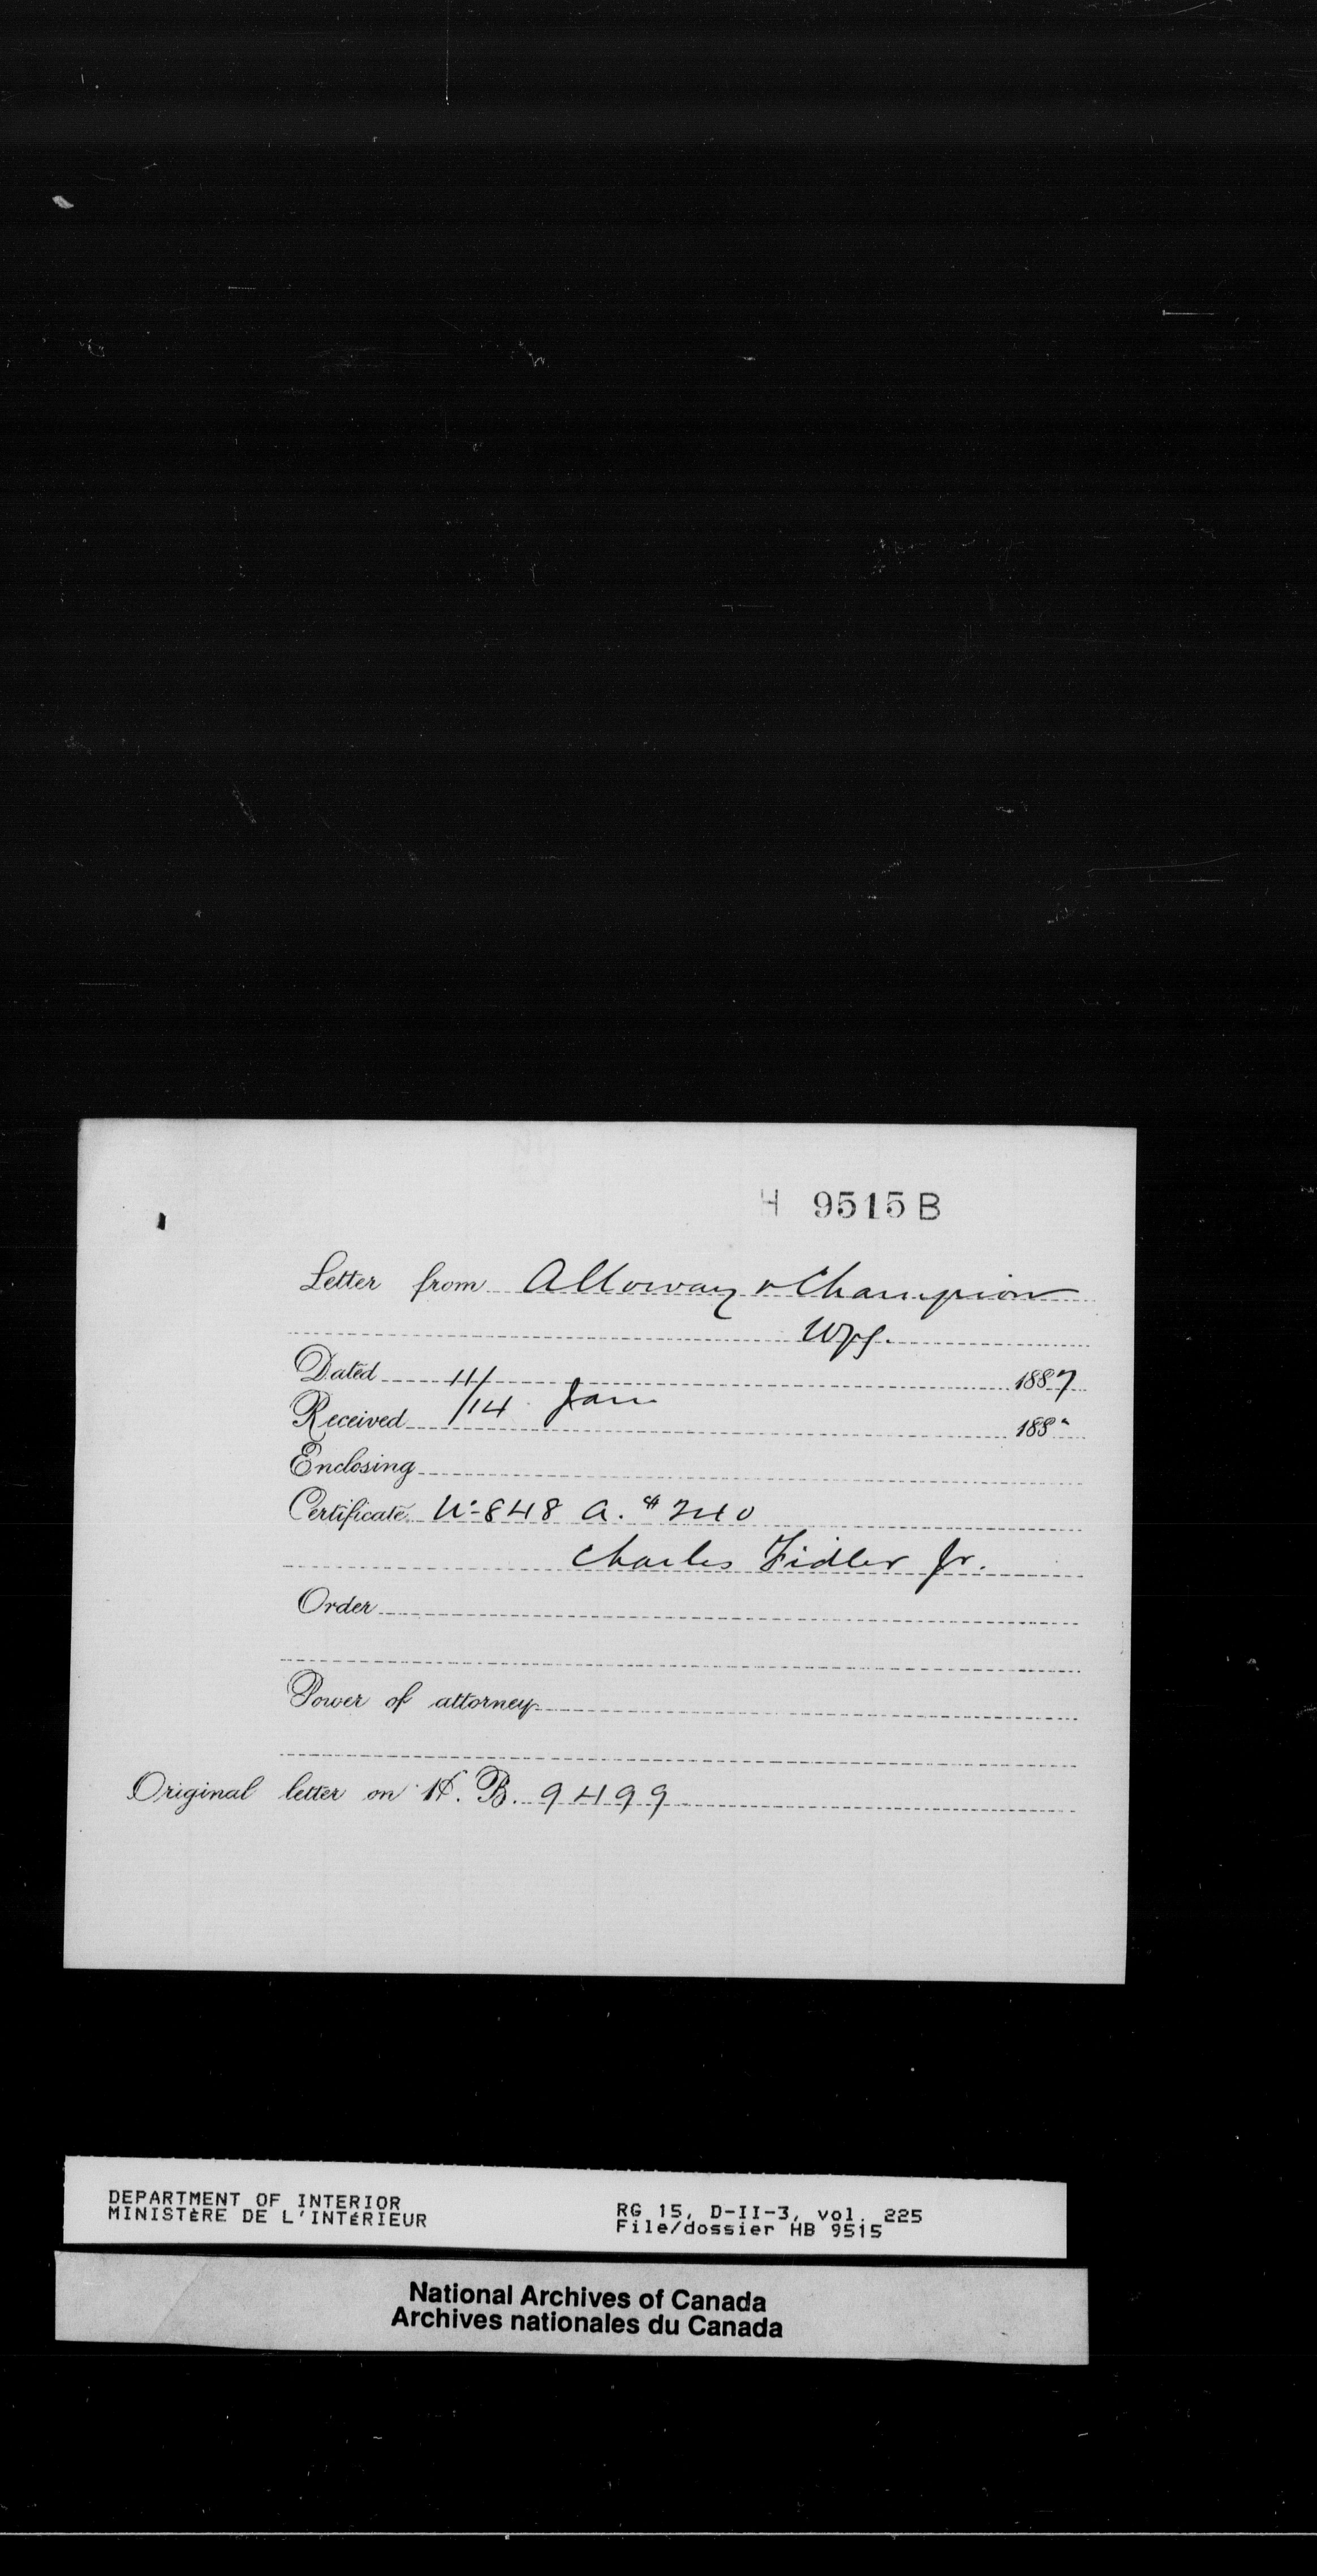 H 9515 B
Letter from Alloway & Champion
Wpg.
Dated 11/ 1887
Received /14 Jan 188"
Enclosing
Certificate No 848 A. $240
Charles Fidler Jr.
Order
Power of attorney
Original letter on H. B. 9499
DEPARTMENT OF INTERIOR
MINISTÈRE DE L'INTÉRIEUR
RG 15, D-II-3, vol. 225
File/dossier HB 9515
National Archives of Canada
Archives nationales du Canada